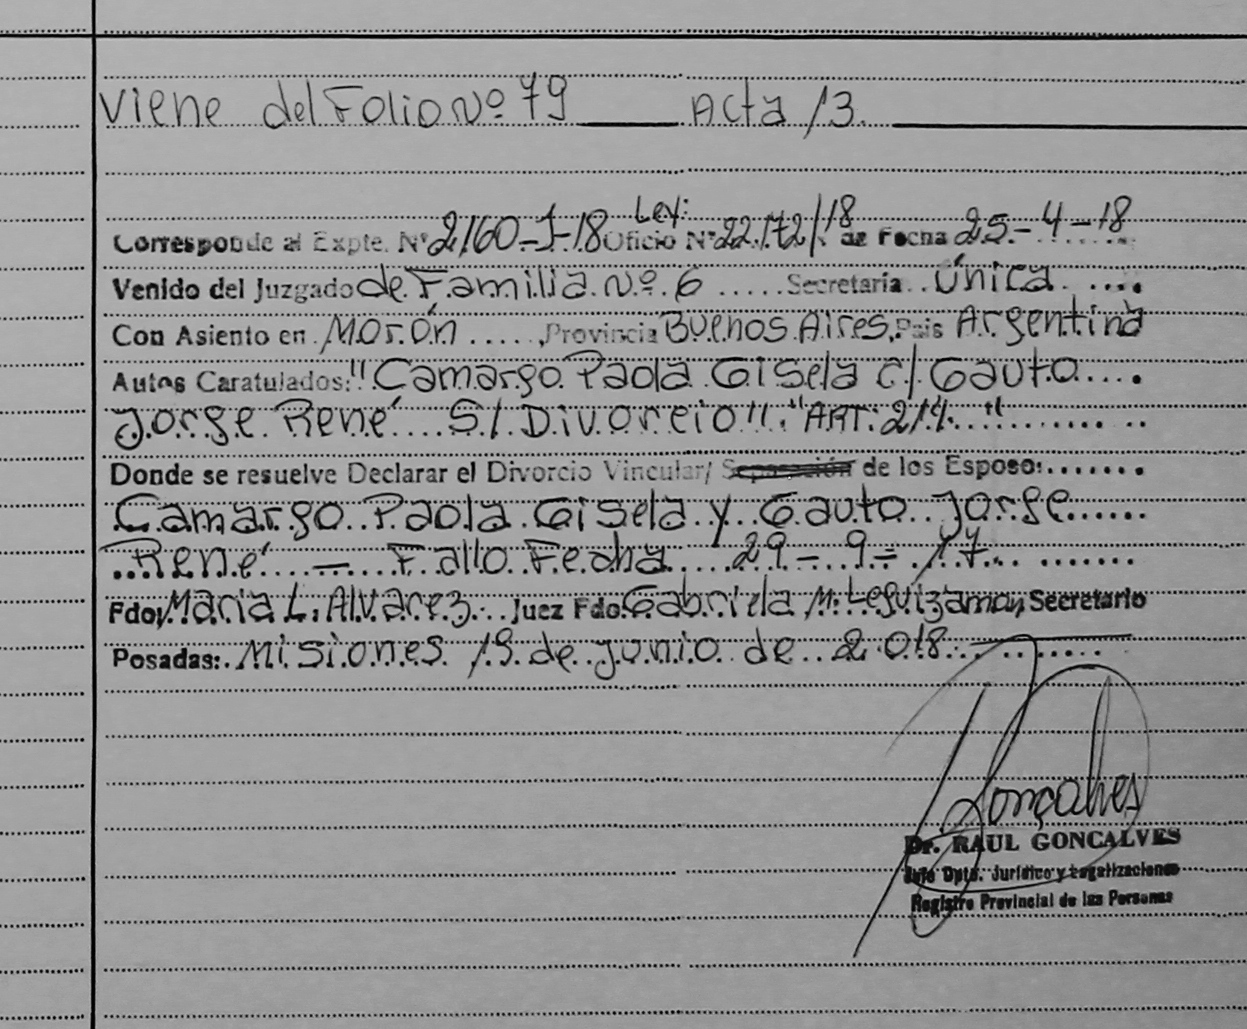 Viene del Folio Nº 79 Acta 13.
Corresponde al Expte. Nº 2160-J-18 Oficio Ley: Nº 22.172/18 de Fecha 25-4-18
Venido del Juzgado de Familia Nº 6 ..... Secretaria .. Única ....
Con Asiento en Morón ....., Provincia Buenos Aires, Pais Argentina
Autos Caratulados: "Camargo Paola Gisela c/ Gauto ....
Jorge René S/ Divorcio". "ART: 214 "
Donde se resuelve Declarar el Divorcio Vincular/ Separación de los Esposo: .......
Camargo Paola Gisela y Gauto Jorge ......
René — Fallo Fecha 29-9-17
Fdo, Maria L. Alvarez. Juez Fdo. Gabriela M. Leguizamon, Secretario
Posadas: Misiones 19 de junio de 2018
Gonçalves
Dr. RAUL GONCALVES
Jefe Dpto. Jurídico y Legalizaciones
Registro Provincial de las Personas